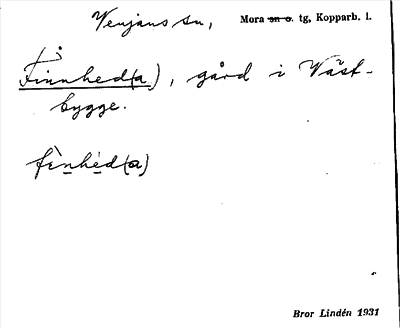 Venjans sn, Mora sn o. tg, Kopparb. l.
Finnhed(a), gård i Väst-
bygge.
fìnhèd(a)
Bror Lindén 1931